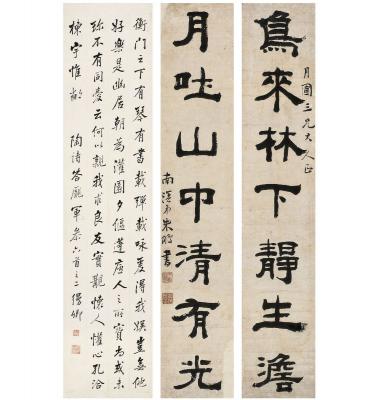 月圃三兄大人正
鳥來林下靜生澹
月吐山中清有光
衡門之下有琴有書載彈載咏爰得我娛豈無他
好樂是幽居朝為灌園夕偃蓬廬人之所寶尚或未
珍不有同愛云何以親我求良友實覯懷人懽心孔洽
棟宇惟鄰 陶詩答龐軍參六首之二